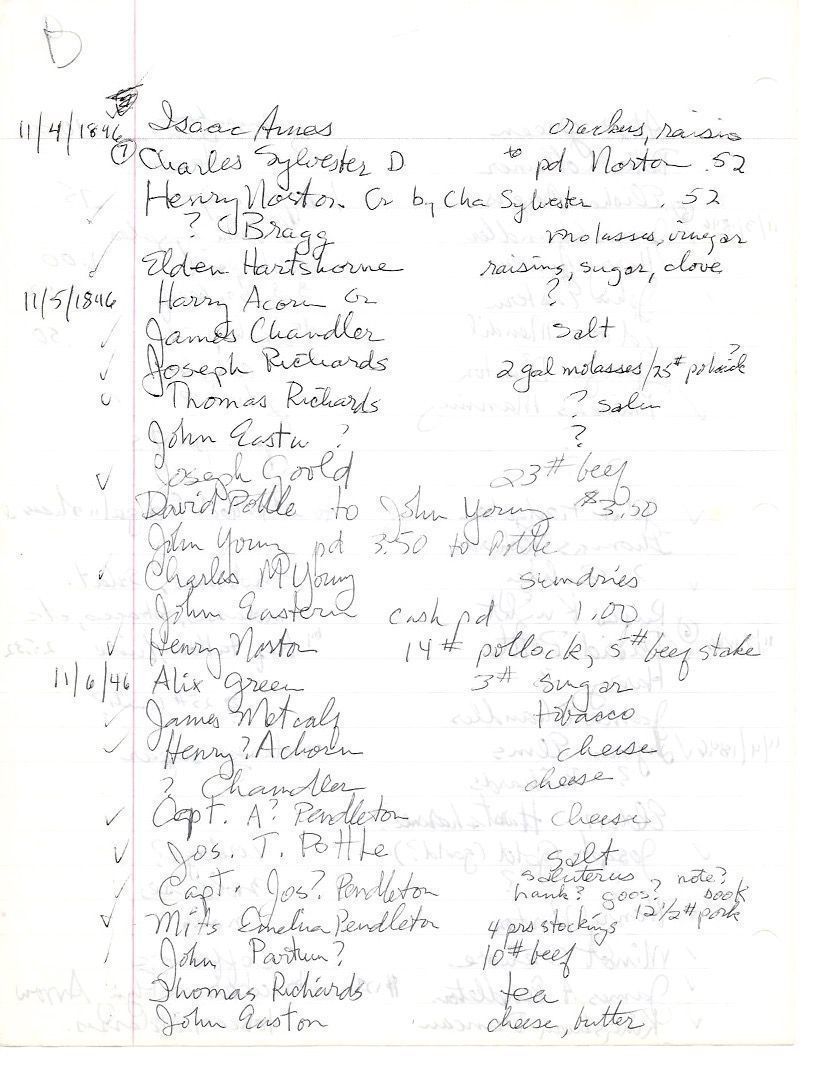 B
11/4/1846 Isaac Ames crackers, raisins
(7) Charles Sylvester D to pd Norton .52
Henry Norton Cr by Cha Sylvester .52
? Bragg molasses, vinegar
Elden Hartshorne raising, sugar, clove
11/5/1846 Harry Acorn Cr ?
James Chandler salt
Joseph Richards 2 gal molasses/25#
Thomas Richards ?
John ? ?
Joseph Goold 23# beef
David Pottle to John Young $3.50
John Young pd 3.50 to Pottle
Charles M Young sundries
John Eastern cash pd 1.00
Henry Norton 14# pollock, 5# beef stake
11/6/46 Alix Green 3# sugar
James Metcalf tobacco
Henry? Achorn cheese
? Chandler cheese
Capt. A? Pendleton cheese
Jos. T. Pottle salt
saluterus note?
Capt. Jos? Pendleton hank? goos? book
Mits Emelia Pendleton 4 prs stockings 12 1/2# pork
John Partun? 10# beef
Thomas Richards tea
John Easton cheese, butter